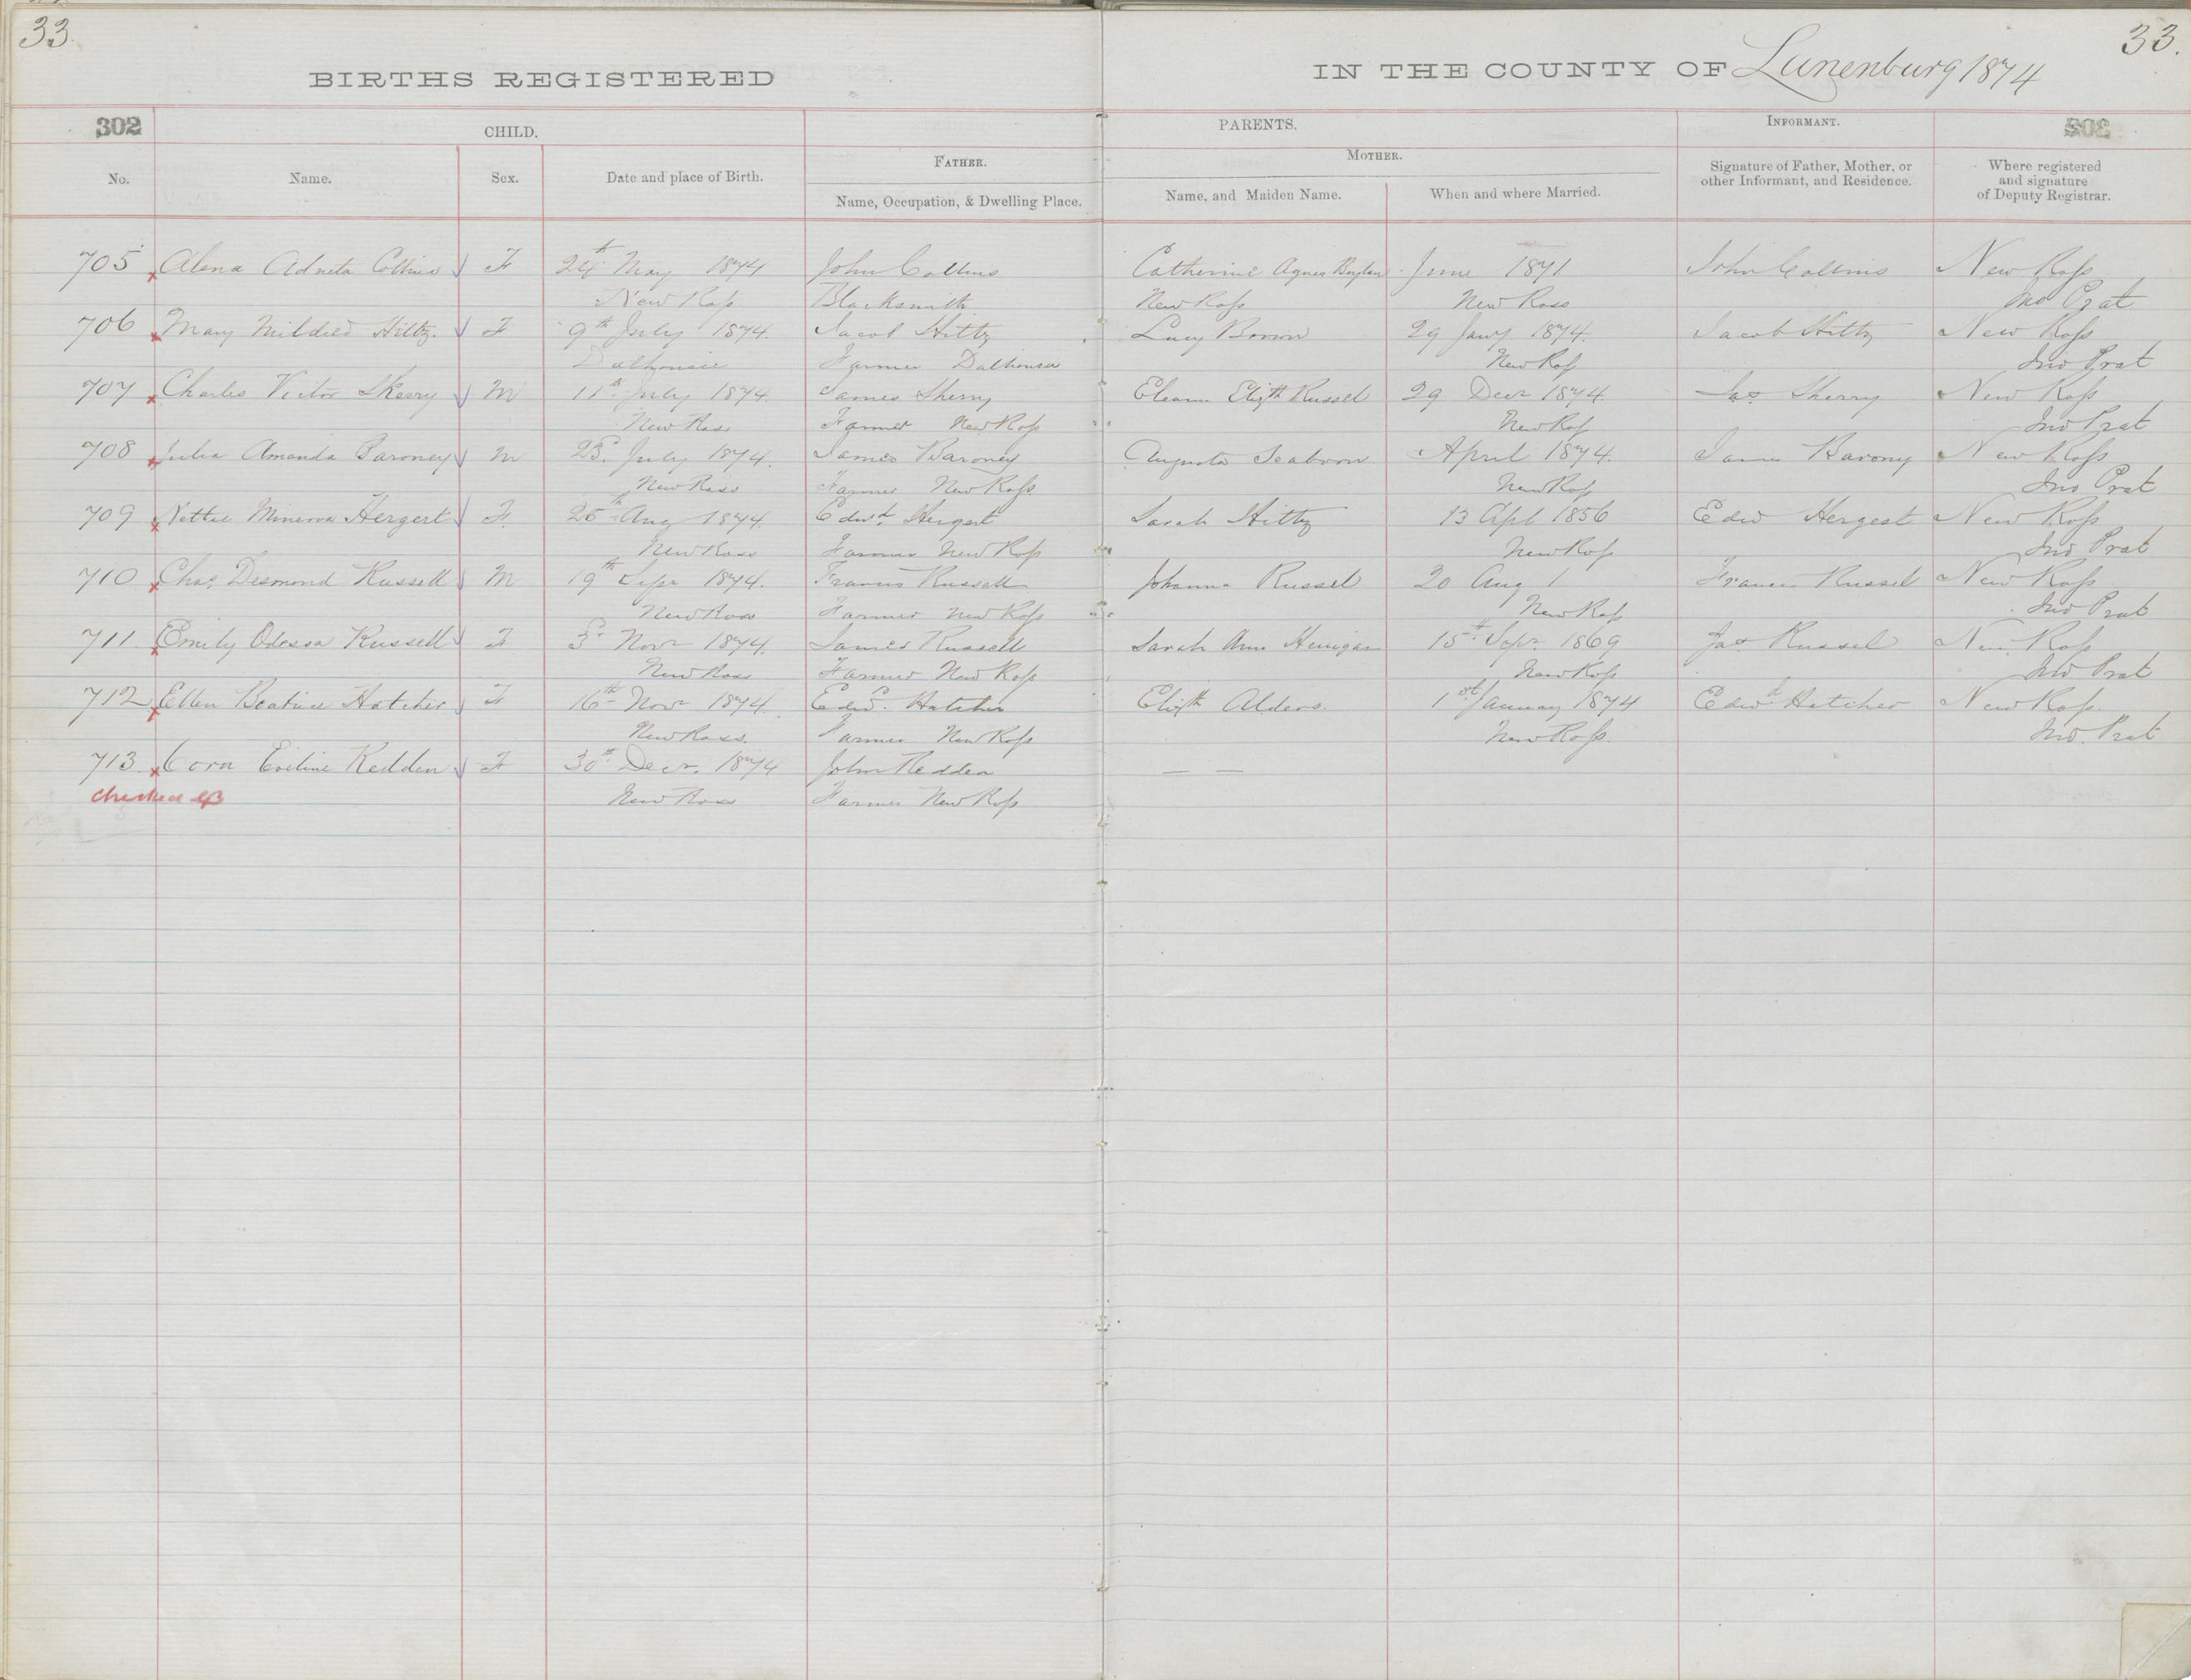 33.
33.
BIRTHS REGISTERED IN THE COUNTY OF Lunenburg 1874
302 CHILD. PARENTS. INFORMANT. 302
No. Name. Sex. Date and place of Birth. FATHER. Name, Occupation, & Dwelling Place. MOTHER. Name, and Maiden Name. When and where Married. Signature of Father, Mother, or other Informant, and Residence. Where registered and signature of Deputy Registrar.
705 x Alena Adneta Collins F 24th May 1874 John Collins Catherine Agnes June 1871 John Collins New Ross
New Ross Blacksmith New Ross New Ross Jno Prat
706 x Mary Mildred Hiltz. F 9th July 1874. Jacob Hiltz Lucy 29 Jany 1874. Jacob Hiltz New Ross
Dalhousie Farmer Dalhousie New Ross Jno Prat
707 x Charles Victor Skerry M 11th July 1874. James Sherry Eleanor Elizth Russel 29 Decr 1874. Jas Sherry New Ross
New Ross Farmer New Ross New Ross Jno Prat
708 x Julia Amanda Baroney M 23. July 1874. James Baroney Augusta Seaborn April 1874. James Barony New Ross
New Ross Farmer New Ross New Ross Jno Prat
709 x Nettie Minerva Hergert F. 25th Aug 1874. Edwd. Hergert Sarah Hiltz 13 Apl 1856 Edw Hergest New Ross
New Ross Farmer New Ross New Ross Jno Prat
710 x Chas. Desmond Russell M 19th Sepr 1874. Francis Russell Johanna Russel 20 Aug 1 Francis Russel New Ross
New Ross Farmer New Ross New Ross Jno Prat
711 x Emily Odessa Russell F 3d Novr 1874. James Russell Sarah Ann 15th Sepr. 1869 Jas Russel New Ross
New Ross Farmer New Ross New Ross Jno Prat
712 x Ellen Beatrice Hatcher F 16th Novr 1874. Edwd. Hatcher Elizth Alders. 1st January 1874 Edwd Hatcher New Ross.
New Ross. Farmer New Ross New Ross. Jno. Prat
713 x Cora Eveline Redden F 30th Decr. 1874 John Redden — —
checked New Ross Farmer New Ross